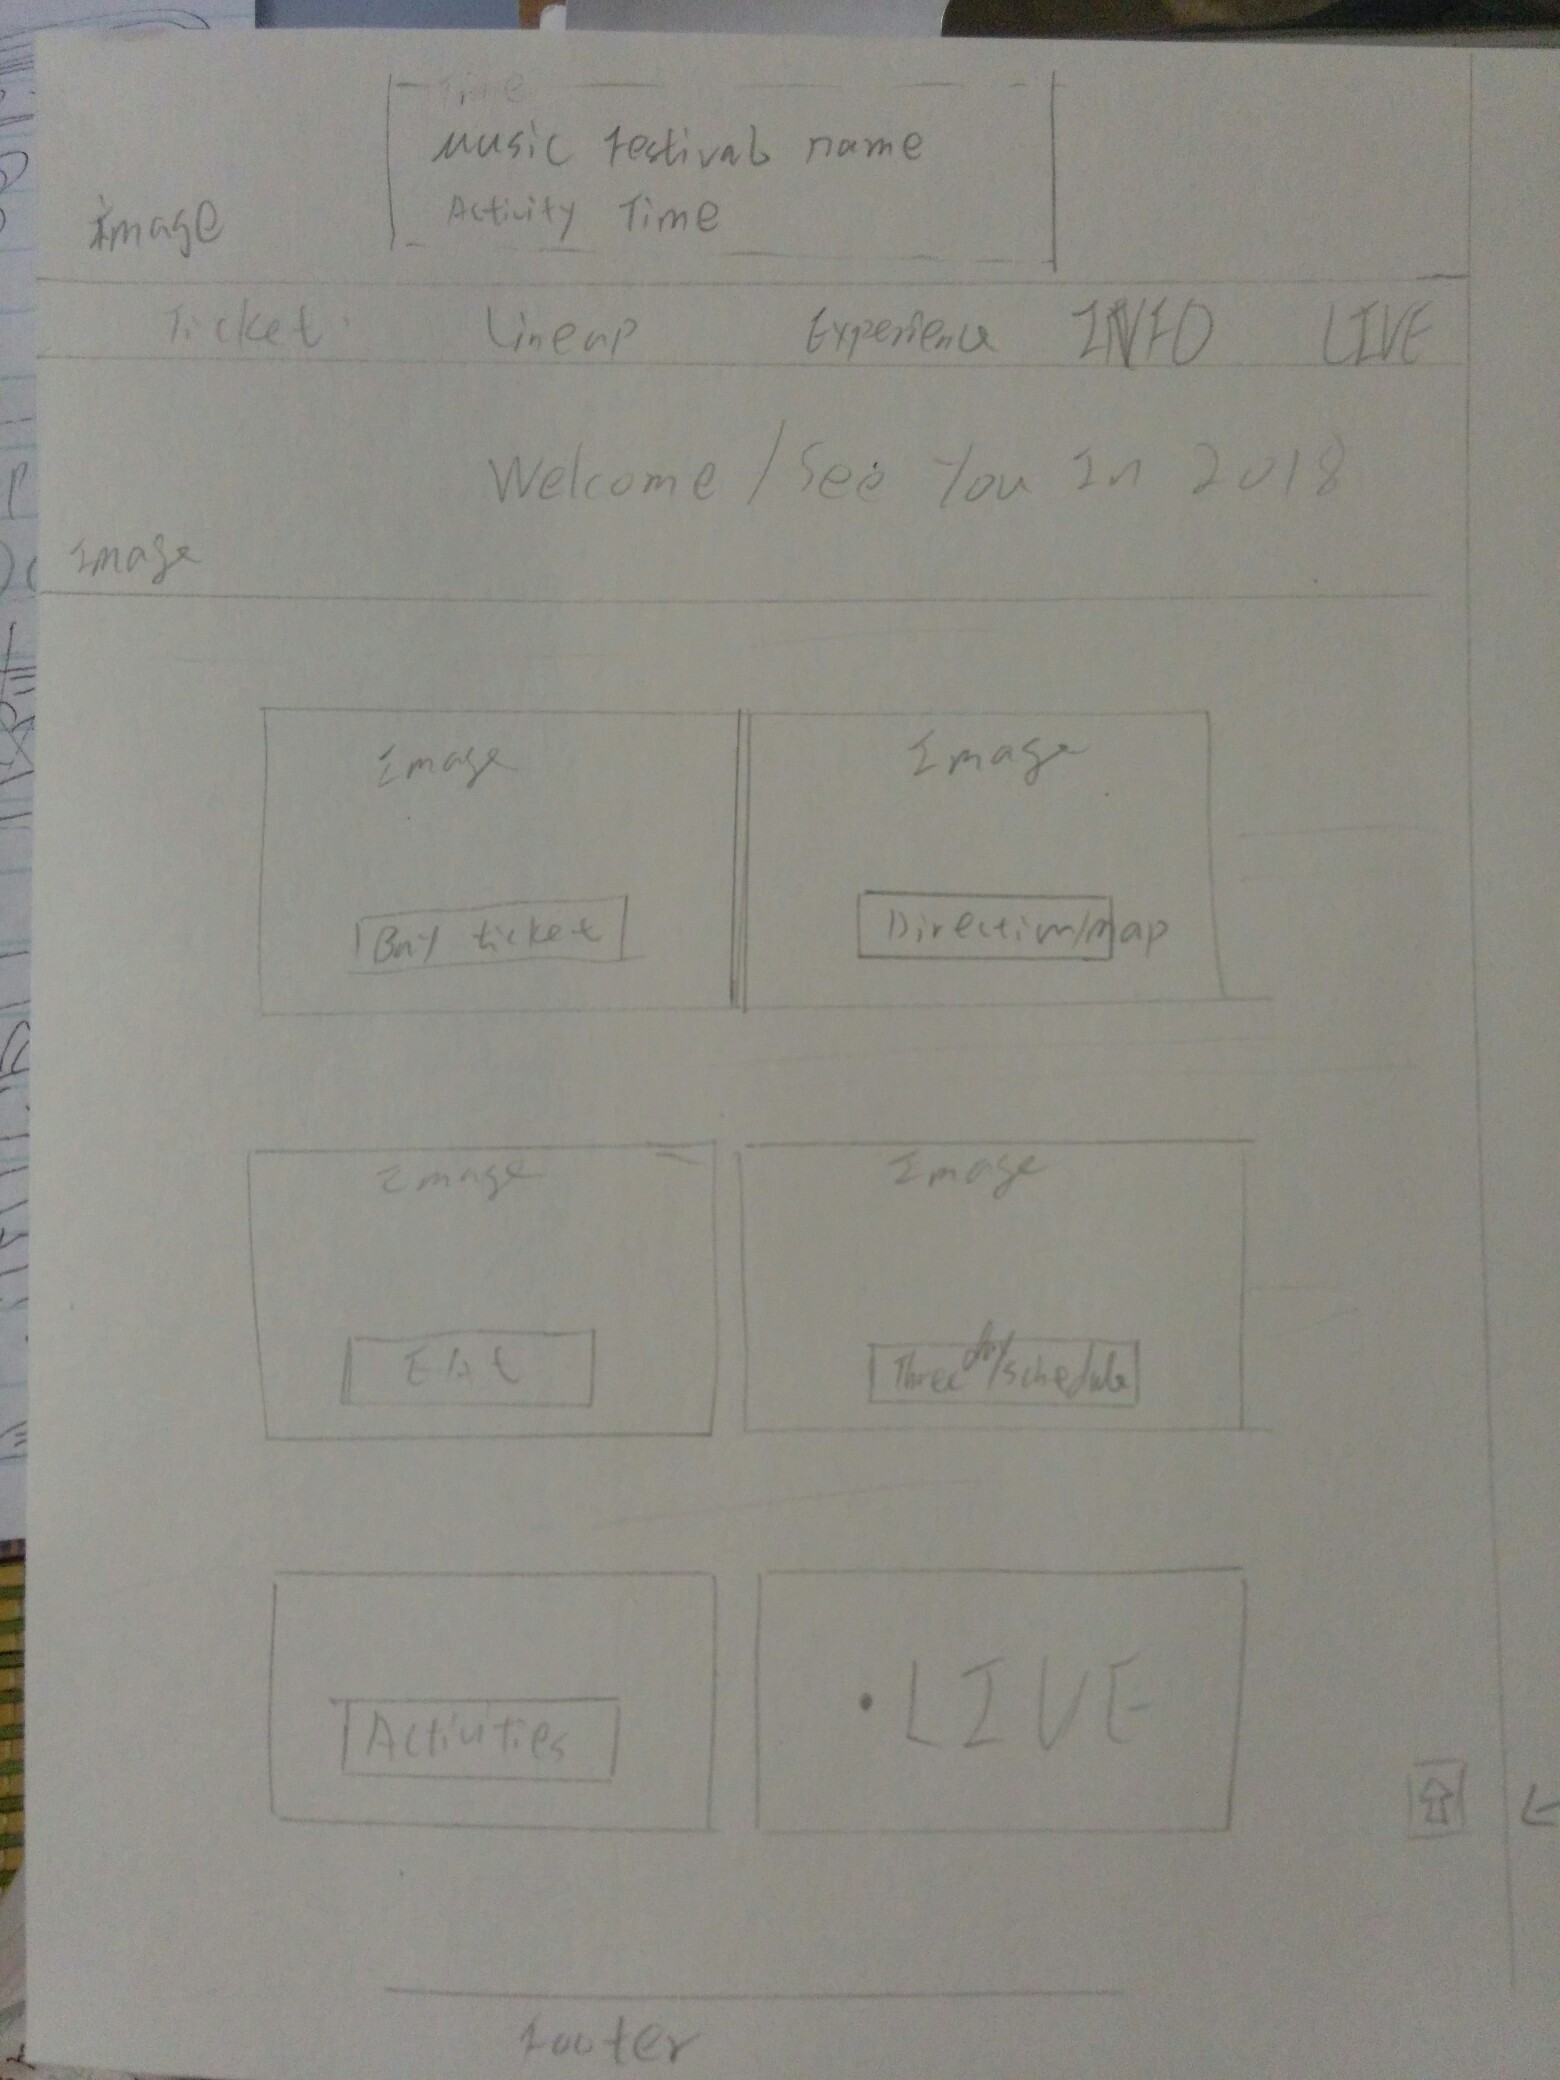 Time
Music festival name
Activity Time
image
Ticket Lineup Experience INFO LIVE
Welcome / See You In 2018
Image
Image Image
Buy ticket Direction/map
Image Image
EAt Three day/schedule
Activities • LIVE
footer